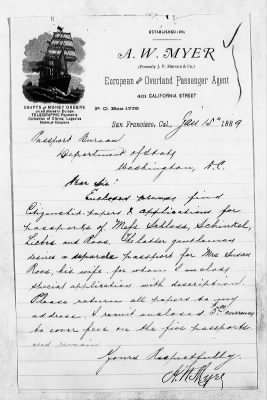 ESTABLISHED 1851
A. W. MYER
(Formerly J. F.
European and Overland Passenger Agent
401 CALIFORNIA STREET
P. O. Box 1776
DRAFTS and MONEY ORDERS
on all places in Europe
TELEGRAPHIC Payments
Collection of Claims, Legacies
San Francisco, Cal., Jan 12th 1889
Passport Bureau
Department of State
Washington, D.C.
Dear Sir
Enclosed please find
Citizenship papers & applications for
passports of Messrs. Schloss, Schunkel,
and Roos. The latter gentleman
desires a separate passport for Mrs Susan
Roos, his wife for whom I enclose
special application with description.
Please return all papers to my
address. I remit enclosed $5.00 currency
to cover fees on the five passports
and remain
Yours Respectfully
A. W. Myer